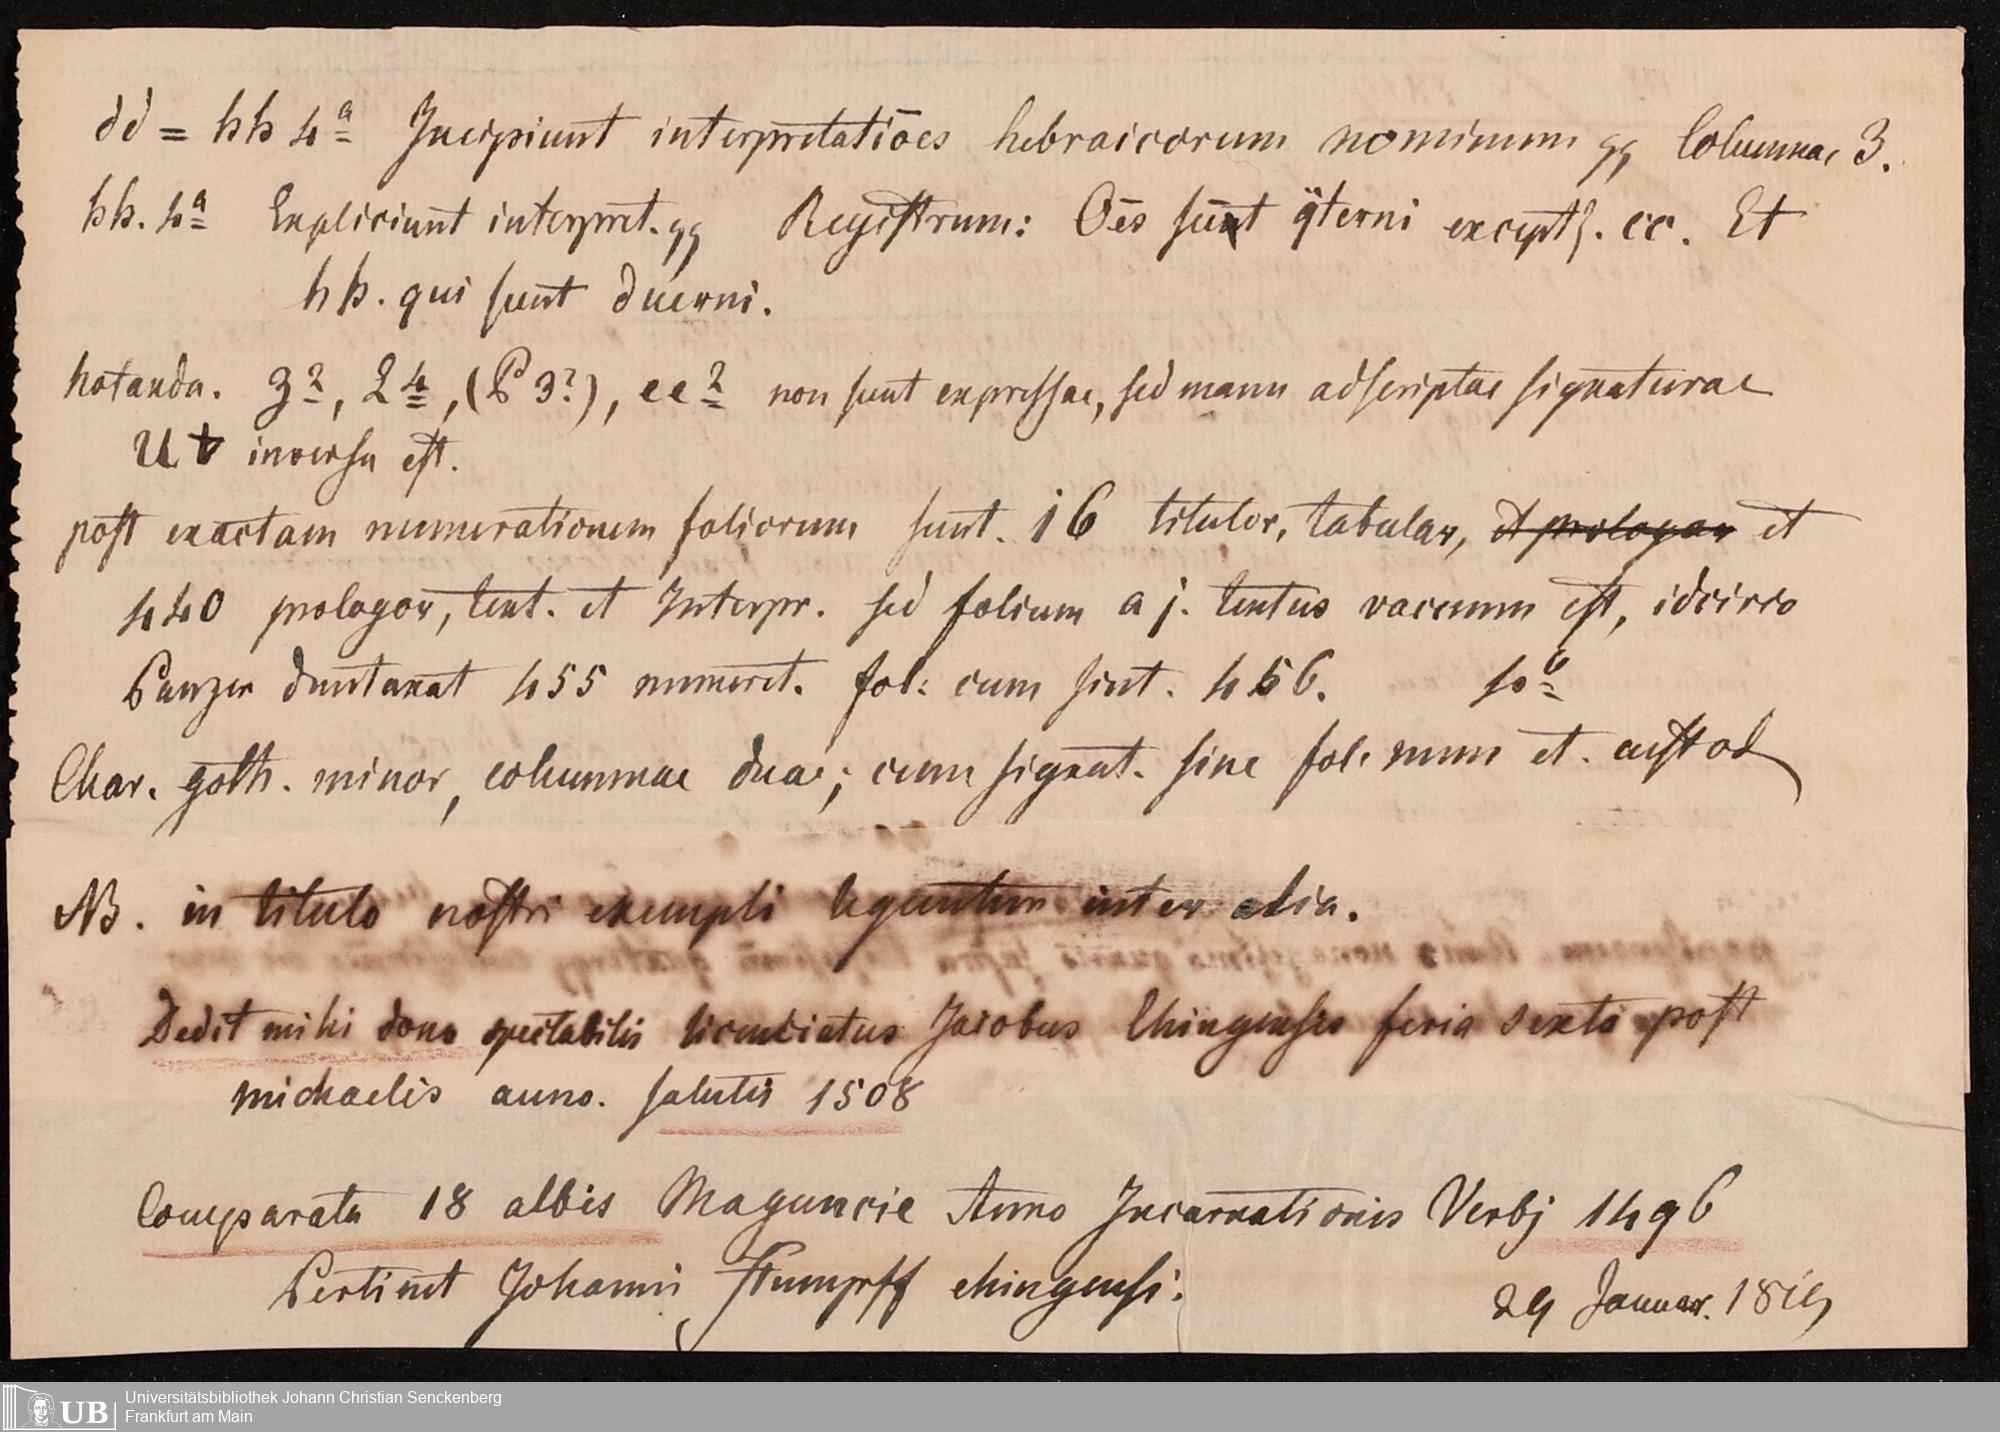 dd = hh 4a Incipiunt interpretatiōes hebraicorum nominum gg Columnae 3.
hh. 4a Expliciunt interpret. gg Registrum: Oēs sūnt q̈terni except. cc. Et
hh. qui sunt duerni.
Notanda. 3 2, 2 4, (P 3?), ee 2 non sunt expressae, sed manu adscriptae signaturae
U inversa est.
post exactam numerationem foliorum sunt. 16 titulor, tabular, et prologor et
440 prologor, text. et Interpr. sed folium a j. textus vaccuum est, idcirco
Panzer duntaxat 455 numeret. fol: cum sint. 456.
Char. goth. minor, columnae duae; cum signat. sine fol. num et. custod
NB. in titulo nostri exempli leguntur inter alia.
Dedit mihi dono spectabilis licenciatus Jacobus Ehingensis feria sexta post
michaelis anno. salutis 1508
Comparata 18 albis Maguncie Anno Incarnationis Verbj 1496
Pertinet Johanni Stumpff ehingensi:
29 Januar. 1819
UB
Universitätsbibliothek Johann Christian Senckenberg
Frankfurt am Main